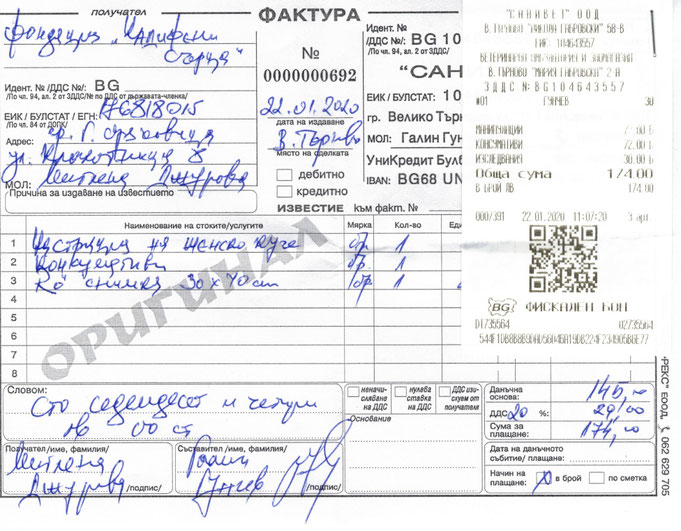 получател
Фондация "
ФАКТУРА
№
0000000692
Идент. №
/ДДС №/ BG 10
/По чл. 94, ал. 2 от ЗДДС/
"САН
Идент. № /ДДС №/ BG
/По чл. 94, ал. 2 от ЗДДС/№ по ДДС от държавата-членка/
ЕИК / БУЛСТАТ / ЕГН: 176818015
/По чл. 84 от ДОПК/
22.01.2020
дата на издаване
ЕИК / БУЛСТАТ: 10
гр. Велико Търн
Адрес:
ул.
В. Търново
място на сделката
МОЛ: Галин Гун
УниКредит Булб
МОЛ: Митлена Джурова
дебитно
кредитно
IBAN: BG68 UN
Причина за издаване на известието
ИЗВЕСТИЕ към факт. №
Наименование на стоките/услугите
Мярка
Кол-во
1 Кастрация на женско куче бр. 1
2 Консумативи бр. 1
3 Rö снимка 30x40 cm бр. 1
4
5
6
7
8
ОРИГИНАЛ
"САНИВЕТ" ООД
ЗДДС № BG104643557
#01 ГУНЧЕВ 30
КОНСУМАТИВИ 72.00 Б
ИЗСЛЕДВАНИЯ 30.00 Б
Обща сума 174.00
В БРОЙ ЛВ 174.00
000/391 22.01.2020 11:07:20 3 арт.
BG ФИСКАЛЕН БОН
DT735564 02735564
Словом:
Сто седемдесет и четири
лв 00 ст
неначи-
сляване
на ДДС
нулева
ставка
на ДДС
ДДС изи-
скуем от
получателя
Основание
Данъчна
основа: 145,00
ДДС 20 %: 29,00
Сума за
плащане: 174,00
Дата на данъчното
събитие/ плащане:
Начин на
плащане: в брой по сметка
Получател /име, фамилия/
Митлена
Джурова /подпис/
Съставител /име, фамилия/
Галин
Гунчев /подпис/
-РЕКС" ЕООД, 062 629 705